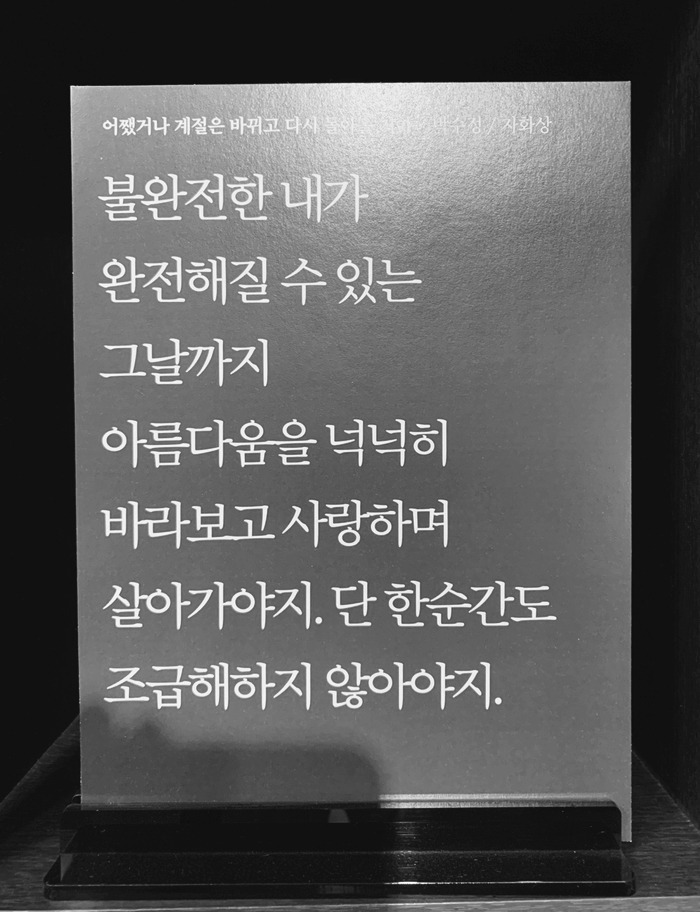 어쨌거나 계절은 바뀌고 다시 / 자화상
불완전한 내가
완전해질 수 있는
그날까지
아름다움을 넉넉히
바라보고 사랑하며
살아가야지. 단 한순간도
조급해하지 않아야지.